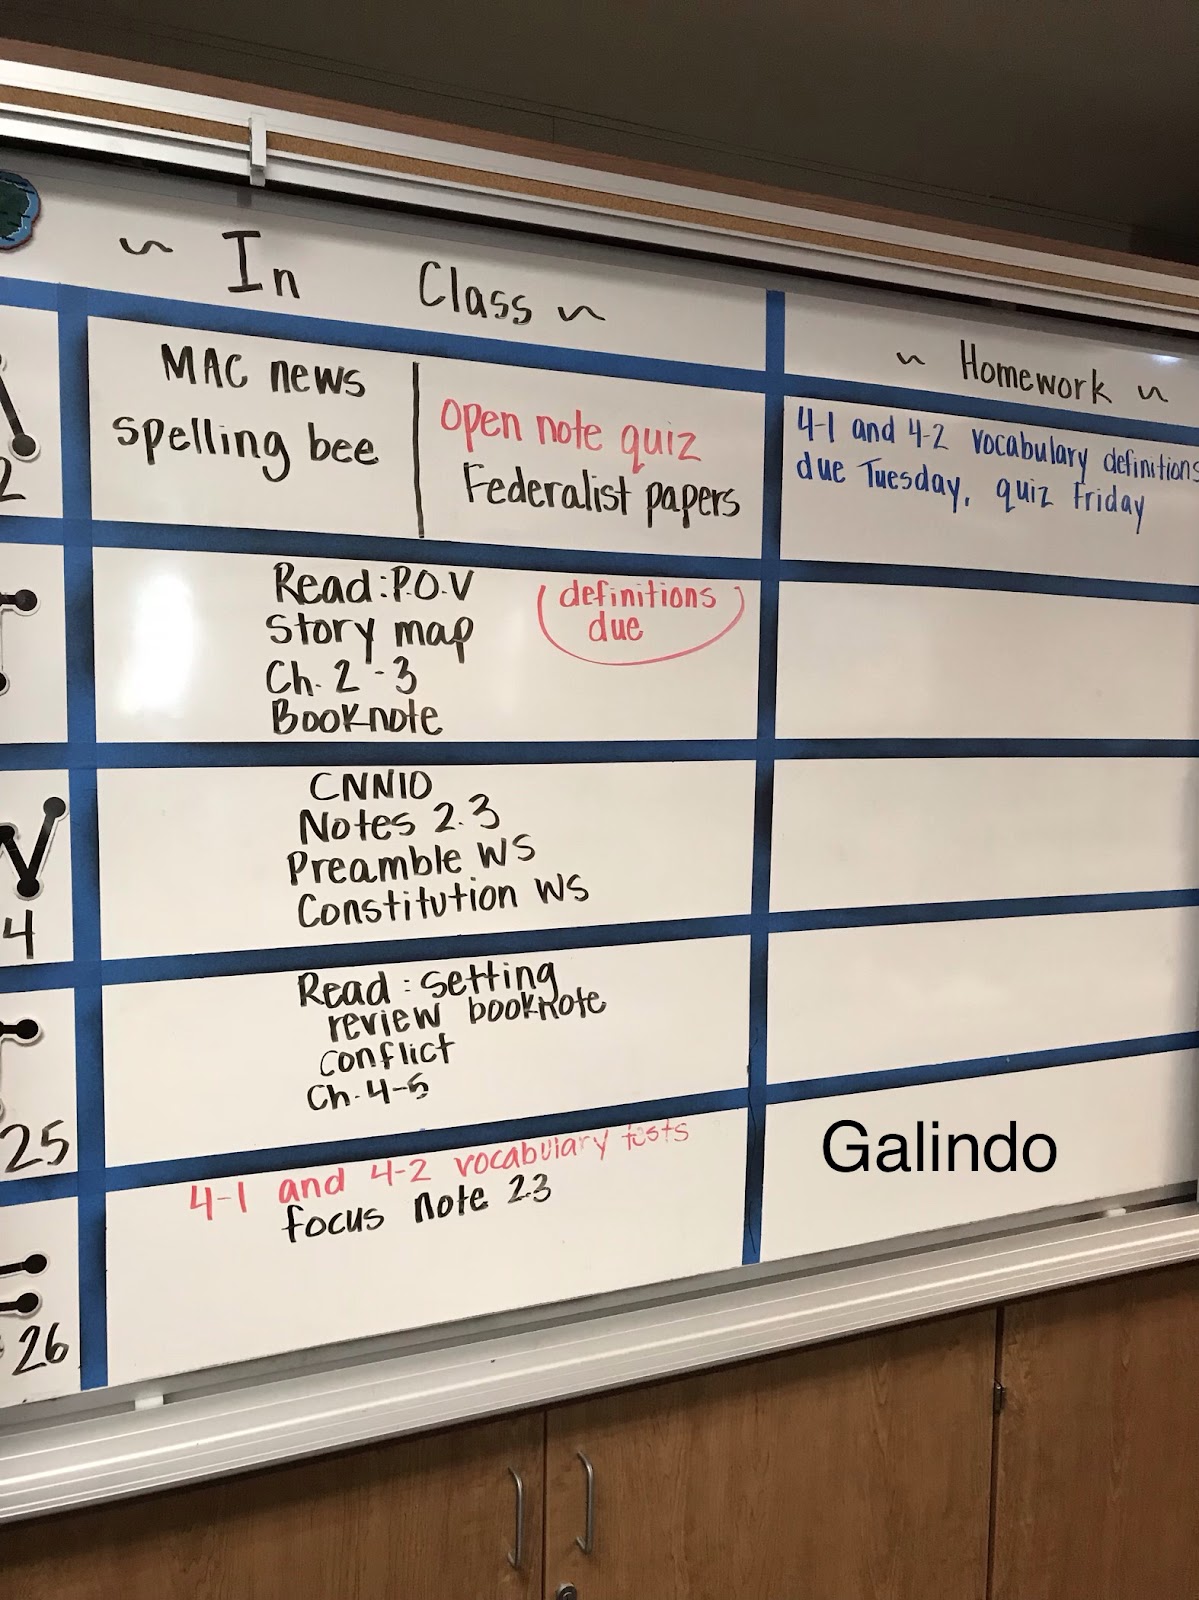 ~ In Class ~
~ Homework ~
2
MAC news
spelling bee
open note quiz
Federalist papers
4-1 and 4-2 vocabulary definitions
due Tuesday, quiz Friday
Read: P.O.V
Story map
Ch. 2-3
Booknote
definitions
due
W
4
CNN10
Notes 2.3
Preamble WS
Constitution WS
25
Read: setting
review booknote
conflict
Ch. 4-5
26
4-1 and 4-2 vocabulary tests
focus note 2.3
Galindo